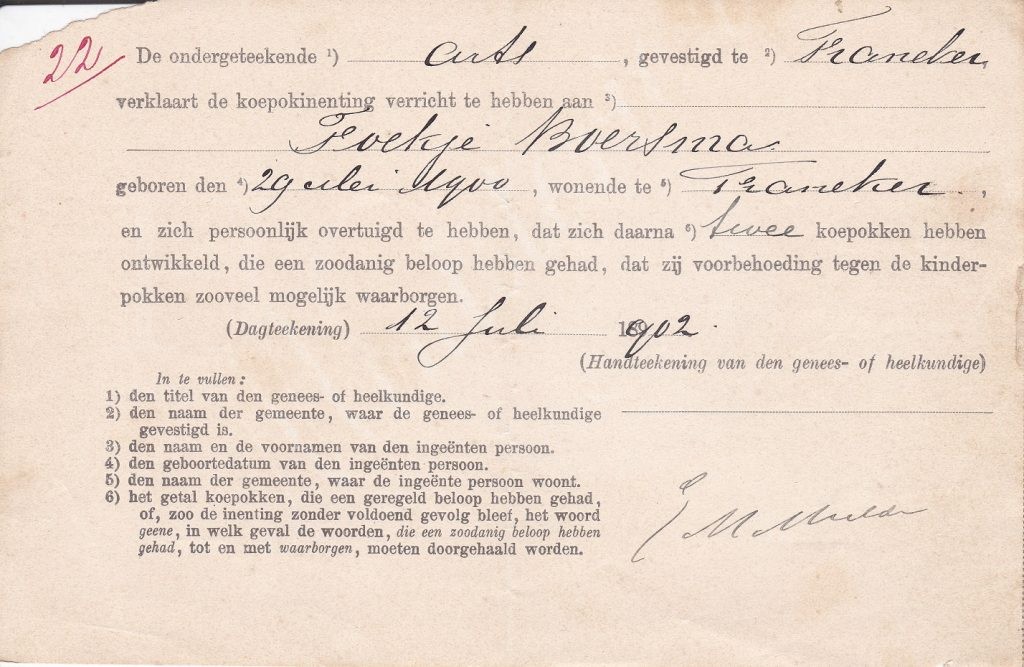 22
De ondergeteekende 1) Arts, gevestigd te 2) Franeker,
verklaart de koepokinenting verricht te hebben aan 3)
Foekje Boersma
geboren den 4) 29 Mei 1900, wonende te 5) Franeker.,
en zich persoonlijk overtuigd te hebben, dat zich daarna 6) twee koepokken hebben
ontwikkeld, die een zoodanig beloop hebben gehad, dat zij voorbehoeding tegen de kinder-
pokken zooveel mogelijk waarborgen.
(Dagteekening) 12 Juli 1902.
(Handteekening van den genees- of heelkundige)
In te vullen:
1) den titel van den genees- of heelkundige.
2) den naam der gemeente, waar de genees- of heelkundige
gevestigd is.
3) den naam en de voornamen van den ingeënten persoon.
4) den geboortedatum van den ingeënten persoon.
5) den naam der gemeente, waar de ingeënte persoon woont.
6) het getal koepokken, die een geregeld beloop hebben gehad,
of, zoo de inenting zonder voldoend gevolg bleef, het woord
geene, in welk geval de woorden, die een zoodanig beloop hebben
gehad, tot en met waarborgen, moeten doorgehaald worden.
M Mulder